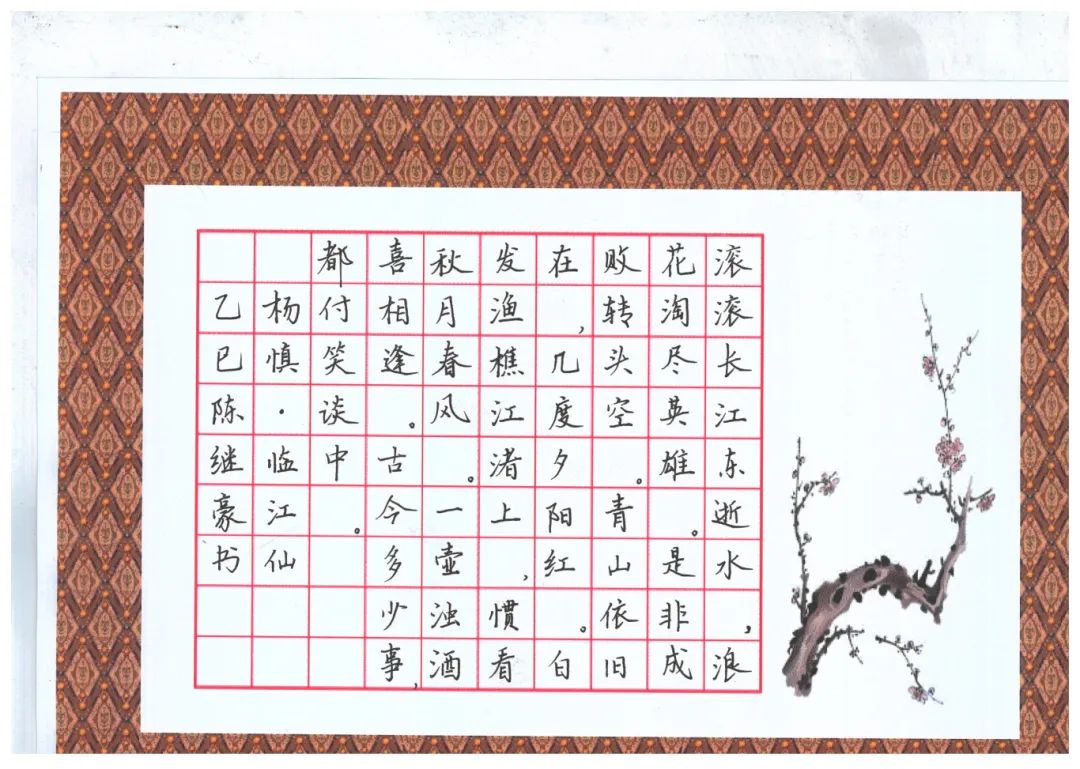 滚滚长江东逝水，浪
花淘尽英雄。是非成
败转头空。青山依旧
在，几度夕阳红。白
发渔樵江渚上，惯看
秋月春风。一壶浊酒
喜相逢。古今多少事，
都付笑谈中。
杨慎·临江仙
乙巳陈继豪书